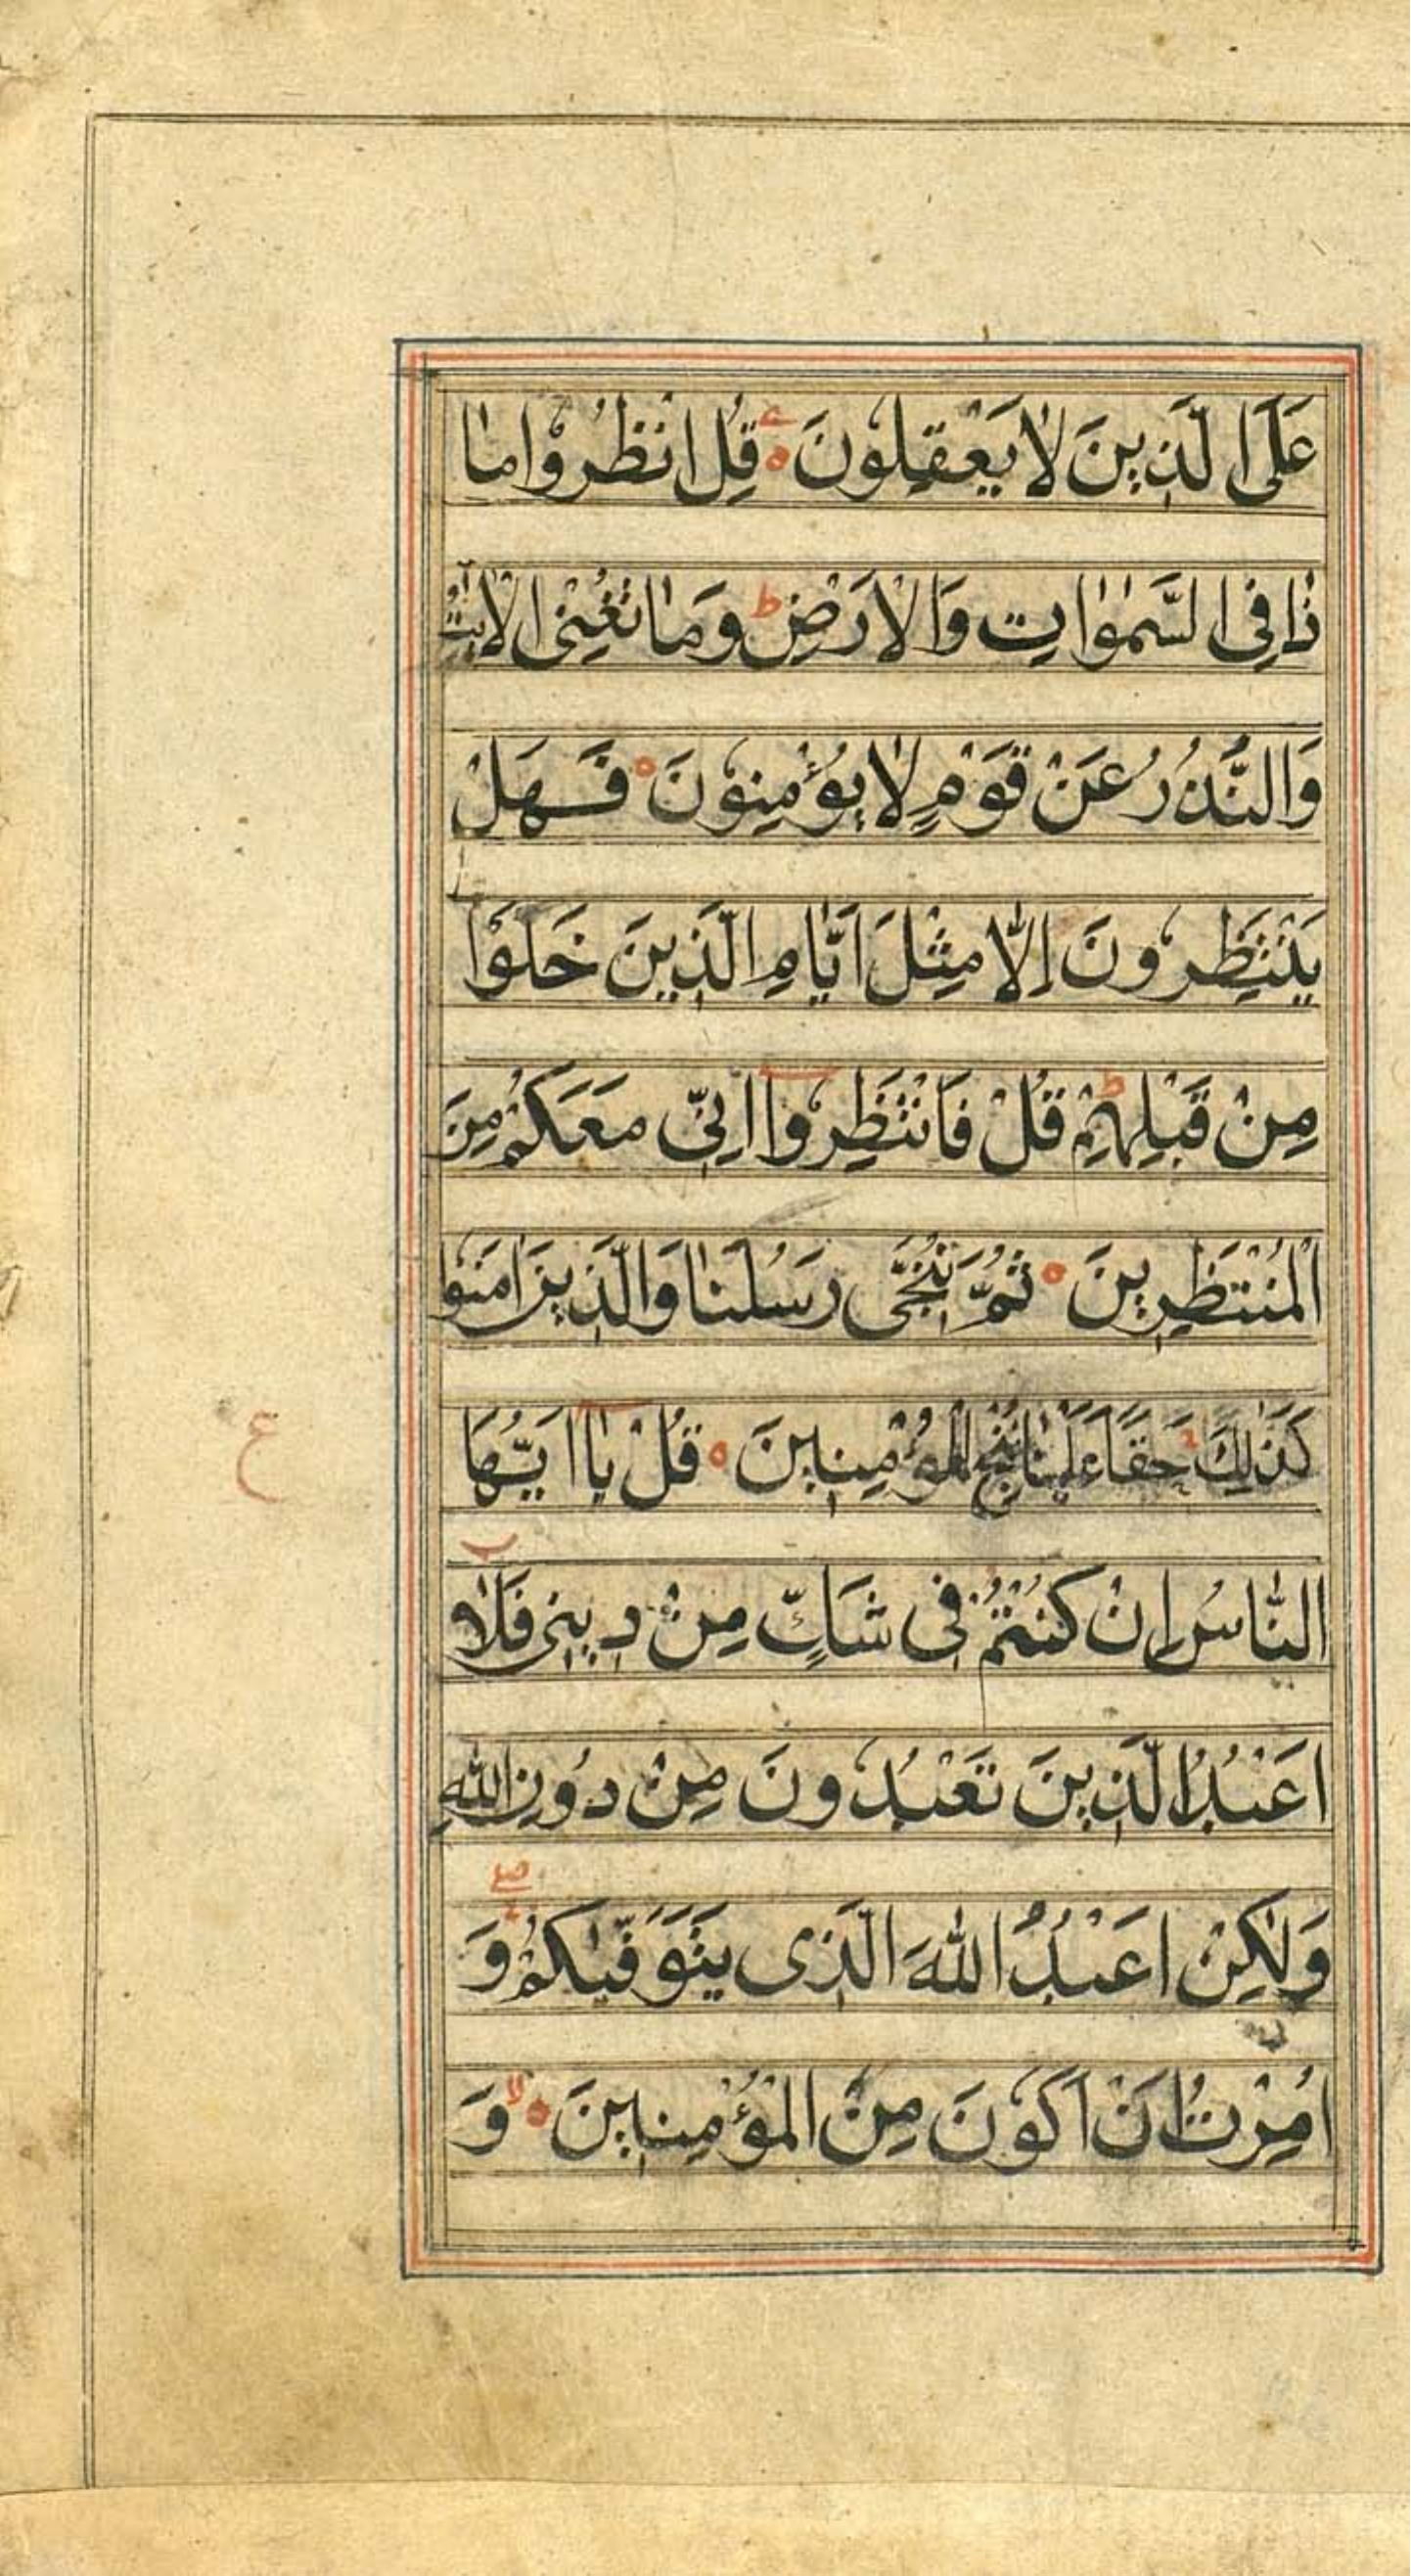 عَلَی الَّذِینَ لَا یَعْقِلُونَ ۝ قُلِ انْظُرُوا مَا
ذَا فِی السَّمٰوٰاتِ وَالْاَرْضِ ط وَمَا تُغْنِی الْاٰیٰتُ
وَالنُّذُرُ عَنْ قَوْمٍ لَا یُؤْمِنُونَ ۝ فَهَلْ
یَنْتَظِرُونَ اِلَّا مِثْلَ اَیَّامِ الَّذِینَ خَلَوْا
مِنْ قَبْلِهِمْ ط قُلْ فَانْتَظِرُوا اِنِّی مَعَكُمْ مِنَ
الْمُنْتَظِرِینَ ۝ ثُمَّ نُنَجِّی رُسُلَنَا وَالَّذِینَ اٰمَنُوا
كَذٰلِكَ حَقًّا عَلَیْنَا نُنْجِ الْمُؤْمِنِینَ ۝ قُلْ یَا اَیُّهَا
ع
النَّاسُ اِنْ كُنْتُمْ فِی شَكٍّ مِنْ دِینِی فَلَا
اَعْبُدُ الَّذِینَ تَعْبُدُونَ مِنْ دُونِ اللّٰهِ
وَلٰكِنْ اَعْبُدُ اللّٰهَ الَّذِی یَتَوَفّٰیكُمْ وَ
اُمِرْتُ اَنْ اَكُونَ مِنَ الْمُؤْمِنِینَ ۝ لا وَ